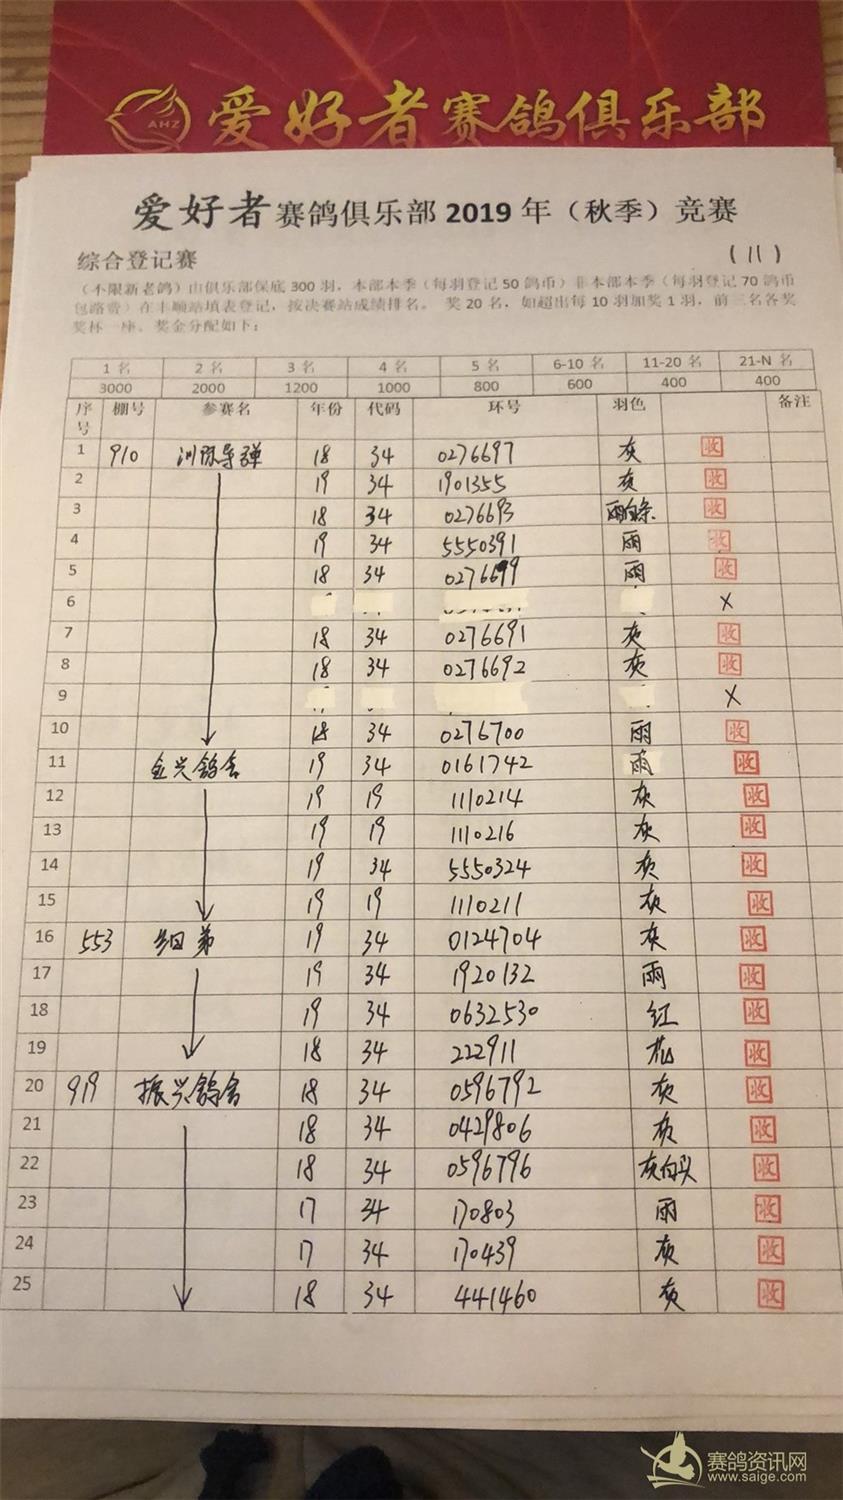 AHZ
爱好者赛鸽俱乐部
爱好者赛鸽俱乐部 2019 年（秋季）竞赛
综合登记赛 (11)
（不限新老鸽）由俱乐部保底 300 羽，本部本季（每羽登记 50 鸽币）非本部本季（每羽登记 70 鸽币
包路费）在丰顺站填表登记，按决赛站成绩排名。 奖 20 名，如超出每 10 羽加奖 1 羽，前三名各奖
奖杯一座。奖金分配如下：
1 名 2 名 3 名 4 名 5 名 6-10 名 11-20 名 21-N 名
3000 2000 1200 1000 800 600 400 400
序号 棚号 参赛名 年份 代码 环号 羽色 备注
1 910 训练导弹 18 34 0276697 灰 收
2 19 34 1901355 灰 收
3 18 34 0276693 雨白条 收
4 19 34 5550391 雨 收
5 18 34 0276699 雨 收
6 X
7 18 34 0276691 灰 收
8 18 34 0276692 灰 收
9 X
10 18 34 0276700 雨 收
11 金兴鸽舍 19 34 0161742 雨 收
12 19 19 1110214 灰 收
13 19 19 1110216 灰 收
14 19 34 5550324 灰 收
15 19 19 1110211 灰 收
16 553 弟 19 34 0124704 灰 收
17 19 34 1920132 雨 收
18 19 34 0632530 红 收
19 18 34 222911 花 收
20 919 振兴鸽舍 18 34 0596792 灰 收
21 18 34 0429806 灰 收
22 18 34 0596796 灰白头 收
23 17 34 170803 雨 收
24 17 34 170439 灰 收
25 18 34 441460 灰 收
赛鸽资讯网
www.saige.com